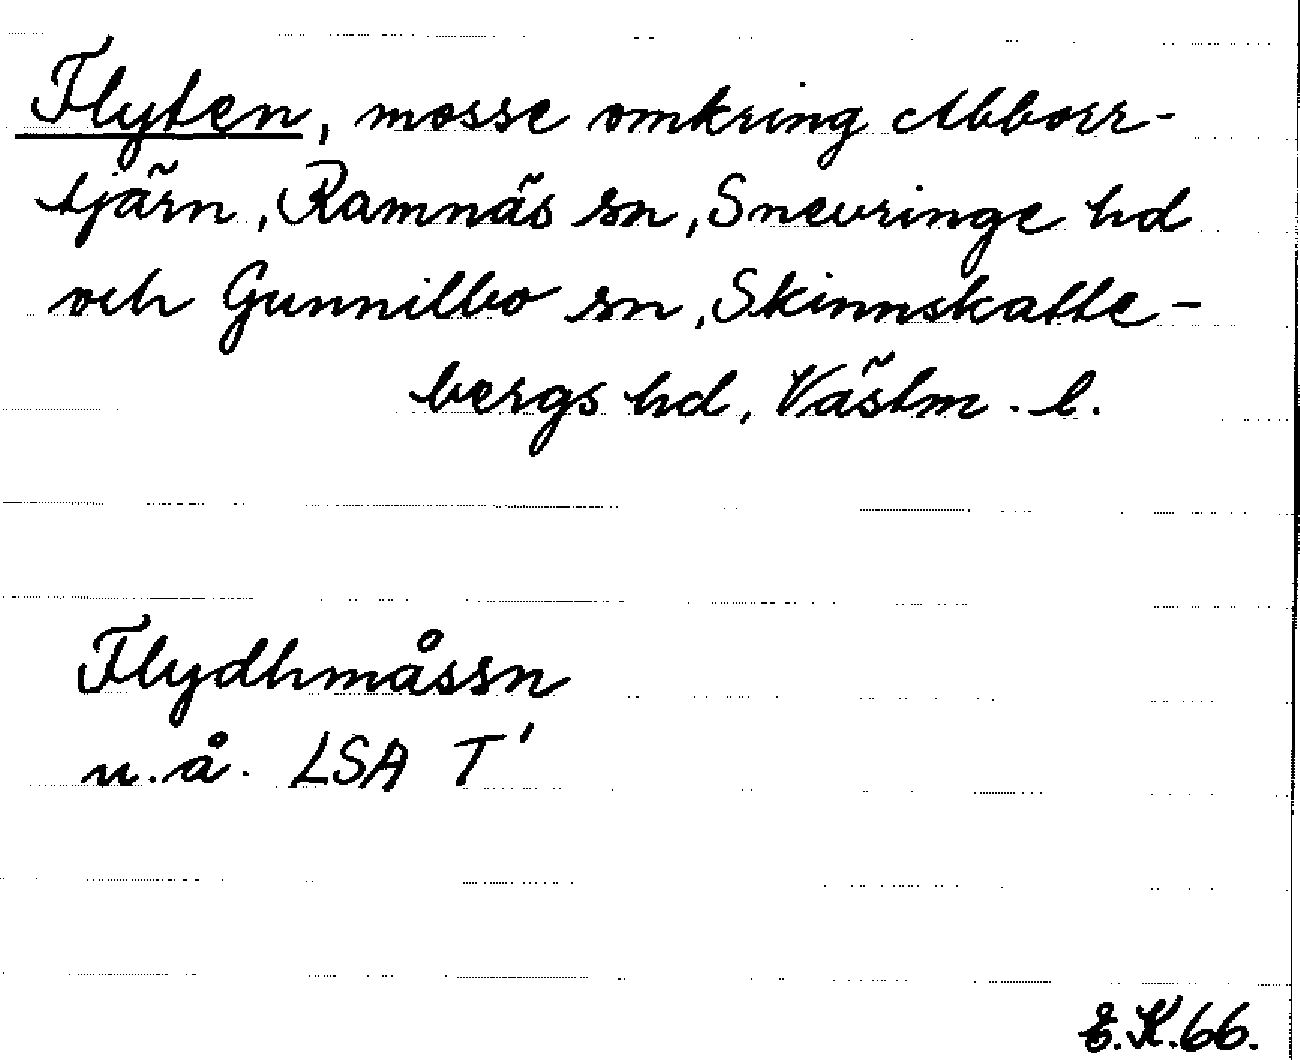 Flyten, mosse omkring Abborr-
tjärn, Ramnäs sn, Snevringe hd
och Gunnilbo sn, Skinnskatte-
bergs hd, Västm. l.
Flydhmåssn
u.å. LSA T'
E.K.66.